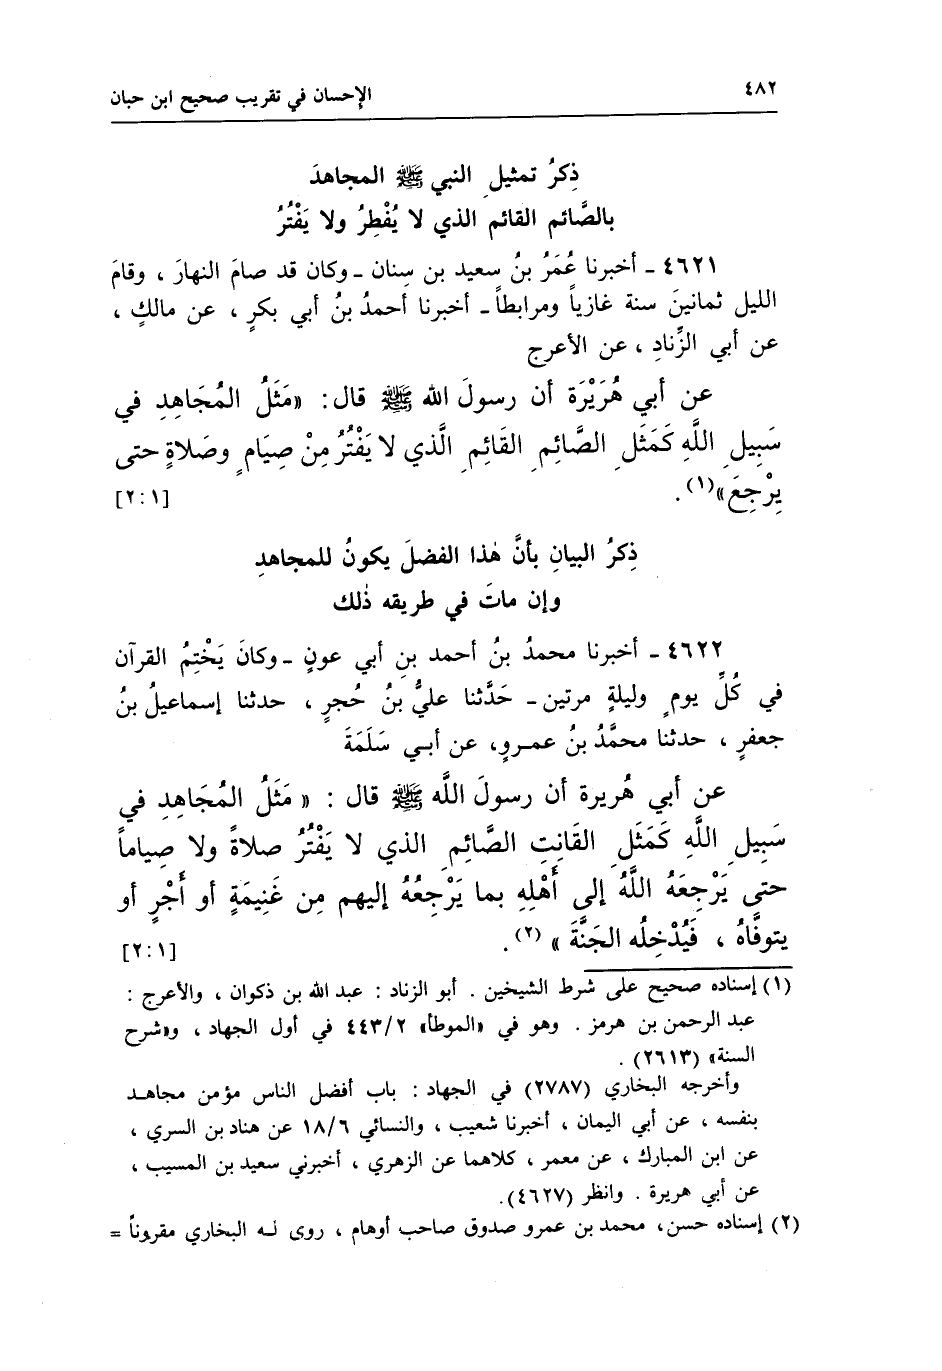 ٤٨٢ الإحسان في تقريب صحيح ابن حبان
ذِكرُ تمثيلِ النبي ﷺ المجاهدَ
بالصَّائم القائم الذي لا يُفْطِرُ ولا يَفْتُرُ
٤٦٢١ ـ أخبرنا عُمَرُ بنُ سعيد بن سِنان ـ وكان قد صامَ النهارَ ، وقامَ
الليل ثمانينَ سنة غازياً ومرابطاً ـ أخبرنا أحمدُ بنُ أبي بكرٍ ، عن مالكٍ ،
عن أبي الزِّنادِ ، عن الأعرج
عن أبي هُرَيْرَة أن رسولَ الله ﷺ قال : «مَثَلُ المُجَاهِدِ في
سَبِيلِ اللَّهِ كَمَثَلِ الصَّائِمِ القَائِمِ الَّذي لا يَفْتُرُ مِنْ صِيَامٍ وصَلاةٍ حتى
يرْجِعَ»(١) . [٢:١]
ذِكرُ البيانِ بأنَّ هٰذا الفضلَ يكونُ للمجاهدِ
وإن ماتَ في طريقه ذٰلك
٤٦٢٢ ـ أخبرنا محمدُ بنُ أحمد بنِ أبي عونٍ ـ وكانَ يَخْتِمُ القرآن
في كُلِّ يومٍ وليلةٍ مرتين ـ حَدَّثنا عليُّ بنُ حُجرٍ ، حدثنا إسماعيلُ بنُ
جعفرٍ ، حدثنا محمَّدُ بنُ عمـروٍ، عن أبـي سَلَمَةَ
عن أبي هُريرة أن رسولَ اللَّه ﷺ قال : « مَثَلُ المُجَاهِدِ في
سَبِيلِ اللَّهِ كَمَثَلِ القَانِتِ الصَّائِمِ الذي لا يَفْتُرُ صلاةً ولا صِياماً
حتى يَرْجِعَهُ اللَّهُ إلى أَهْلِهِ بما يَرْجِعُهُ إليهم مِن غَنِيمَةٍ أو أَجْرٍ أو
يتوفَّاهُ ، فَيُدْخِلُه الجَنَّةَ » (٢) . [٢:١]
(١) إسناده صحيح على شرط الشيخين . أبو الزناد : عبد الله بن ذكوان ، والأعرج :
عبد الرحمن بن هرمز . وهو في «الموطأ» ٤٤٣/٢ في أول الجهاد ، و«شرح
السنة» (٢٦١٣) .
وأخرجه البخاري (٢٧٨٧) في الجهاد : باب أفضل الناس مؤمن مجاهـد
بنفسه ، عن أبي اليمان ، أخبرنا شعيب ، والنسائي ١٨/٦ عن هناد بن السري ،
عن ابن المبارك ، عن معمر ، كلاهما عن الزهري ، أخبرني سعيد بن المسيب ،
عن أبي هريرة . وانظر (٤٦٢٧).
(٢) إسناده حسن، محمد بن عمرو صدوق صاحب أوهام ، روى لـه البخاري مقروناً =